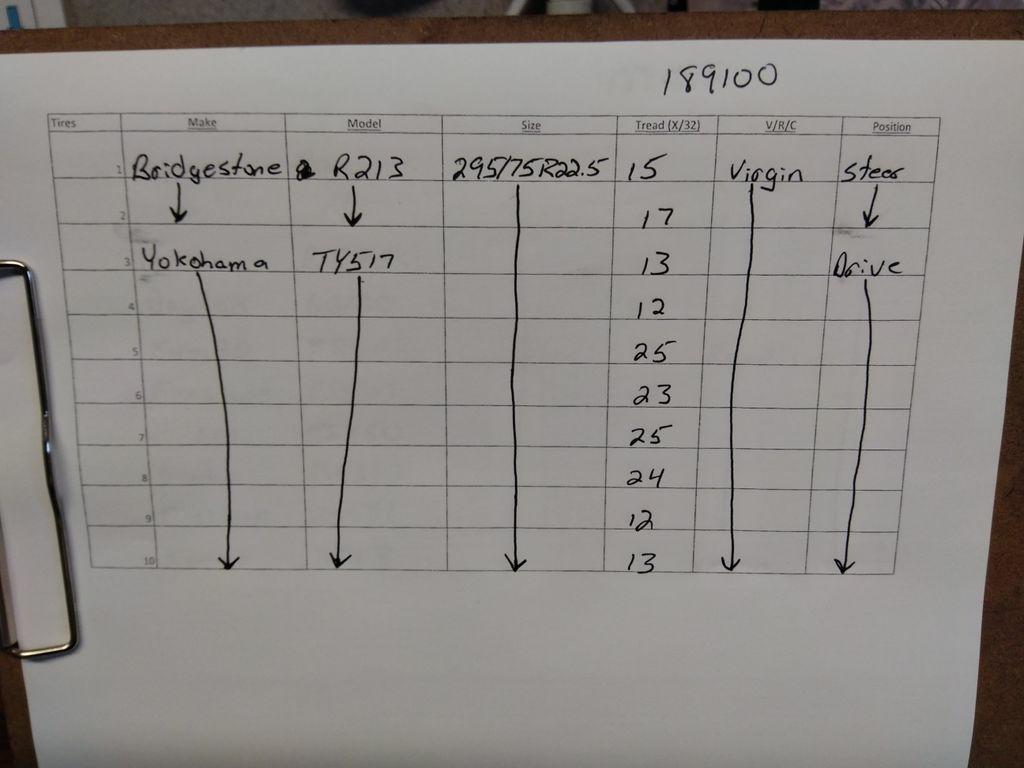 189100
Tires Make Model Size Tread (X/32) V/R/C Position
1 Bridgestone R213 295/75R22.5 15 Virgin Steer
2 17
3 Yokohama TY517 13 Drive
4 12
5 25
6 23
7 25
8 24
9 12
10 13